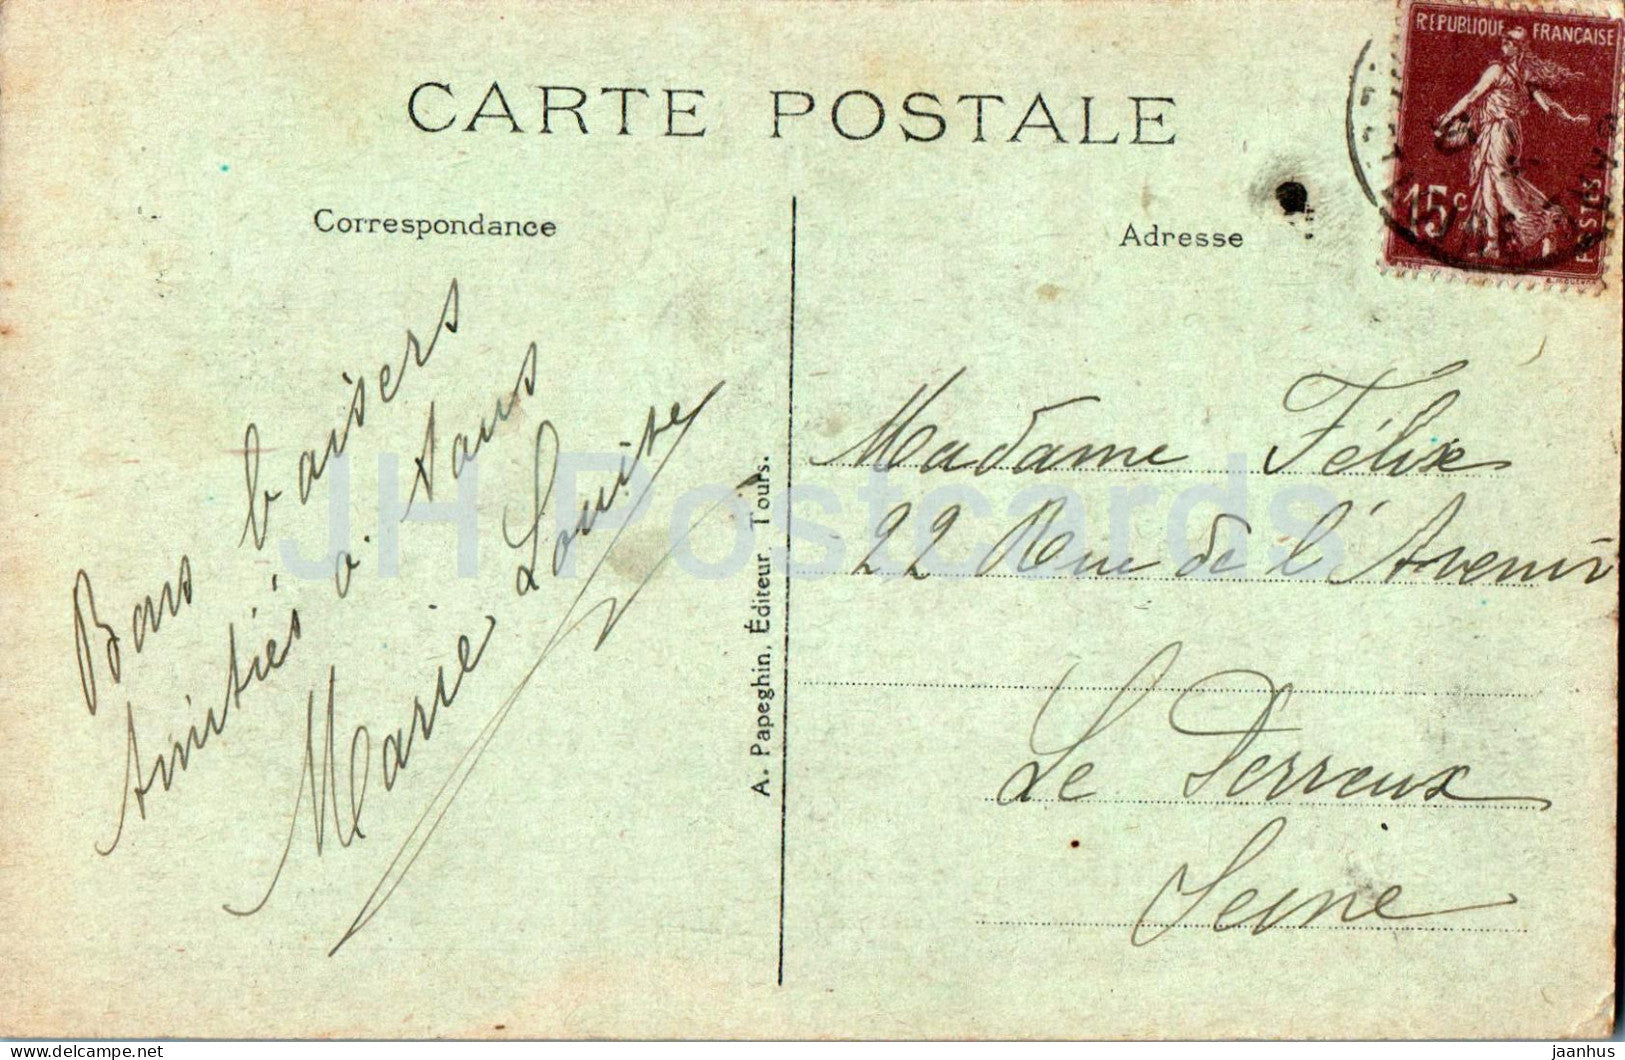 CARTE POSTALE
RÉPUBLIQUE FRANÇAISE
15c
POSTES
Correspondance
Adresse
Bons baisers
Amitiés à tous
Marie Louise
A. Papeghin, Éditeur, Tours.
Madame Félix
22 Rue de l'Avenir
Le Perreux
Seine
JH Postcards
delcampe.net
jaanhus